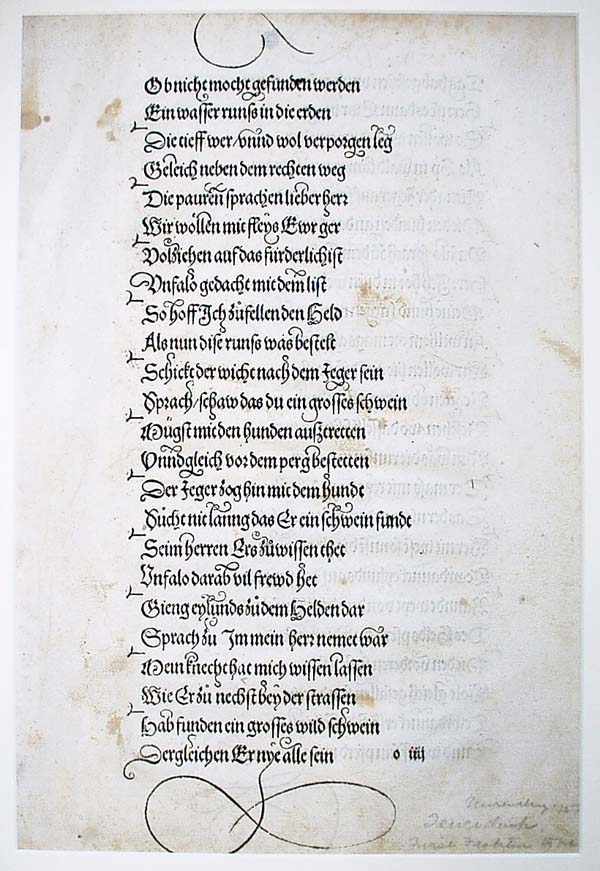 Ob nicht mocht gefunden werden
Ein wasser runss in die erden
Die tieff wer/vnnd wol verporgen leg
Geleich neben dem rechten weg
Die pauren sprachen lieber herr
Wir wöllen mit fleys Ewr ger
Volziehen auf das fürderlichist
Vnfalo gedacht mit dem list
So hoff Ich zufellen den Held
Als nun dise runss was bestelt
Schickt der wicht nach dem Jeger sein
Sprach/schaw das du ein grosses schwein
Mügst mit den hunden ausztretten
Vnnd gleich vor dem perg bestetten
Der Jeger zog hin mit dem hundt
Sücht nit lanng das Er ein schwein fundt
Seim herren Ers zu wissen thet
Vnfalo darab vil frewd het
Gieng eylunds zu dem Helden dar
Sprach zu Im mein herr nemet war
Mein knecht hat mich wissen lassen
Wie Er zu nechst bey der strassen
Hab funden ein grosses wild schwein
Dergleichen Er nye alle sein o iiij
Teuerdank